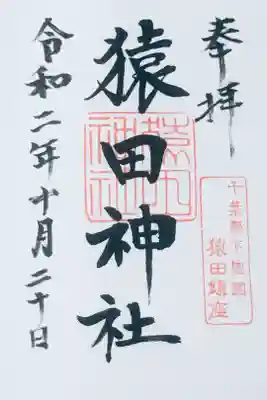 奉拝
千葉縣下総國
猿田鎮座
猿田神社
猿田
神社
令和二年十月二十日